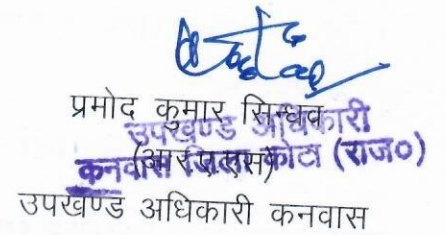 प्रमोद कुमार सिन्धव
उपखण्ड अधिकारी
(आरएएस)
कनवास जिला कोटा (राज०)
उपखण्ड अधिकारी कनवास